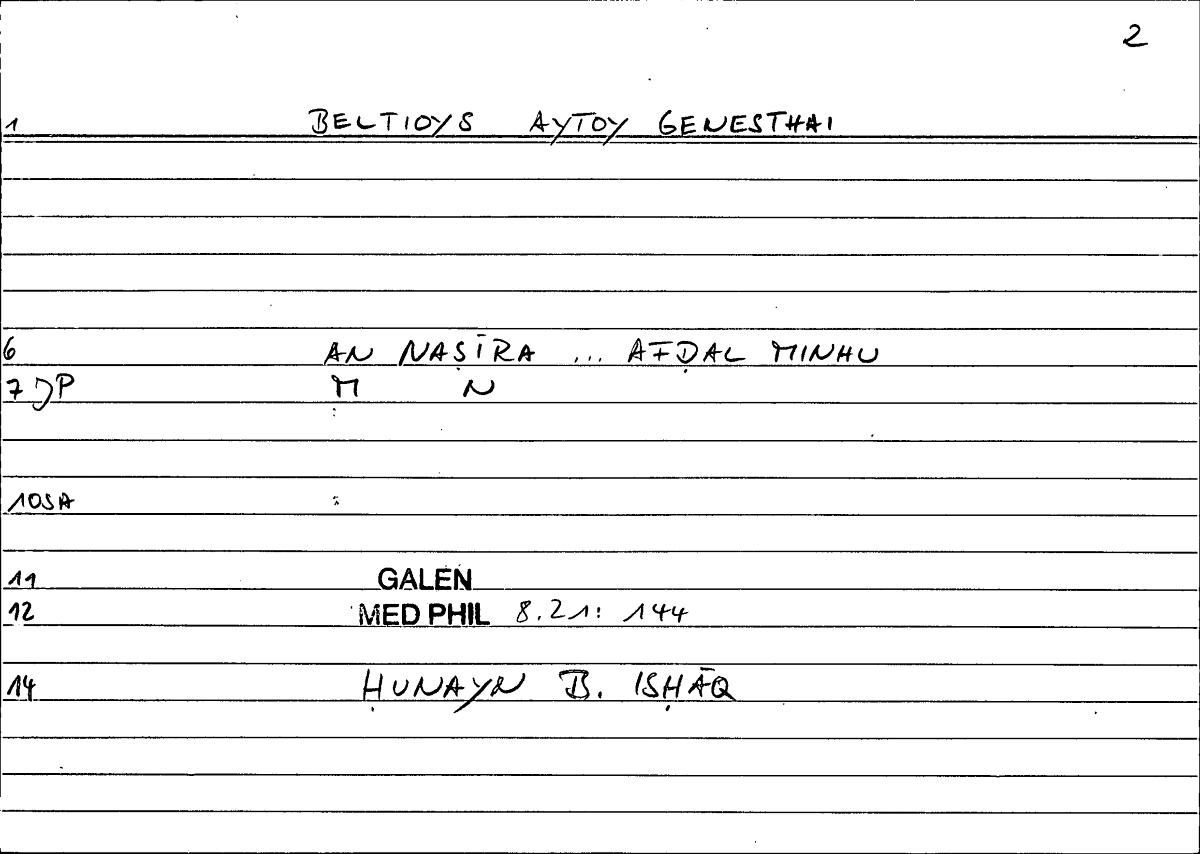 2
1 BELTIOYS AYTOY GENESTHAI
6 AN NAṢĪRA ... AFḌAL MINHU
7 JP M N
:
10SA :
11 GALEN
12 MED PHIL 8.21: 144
14 ḤUNAYN B. ISḤĀQ